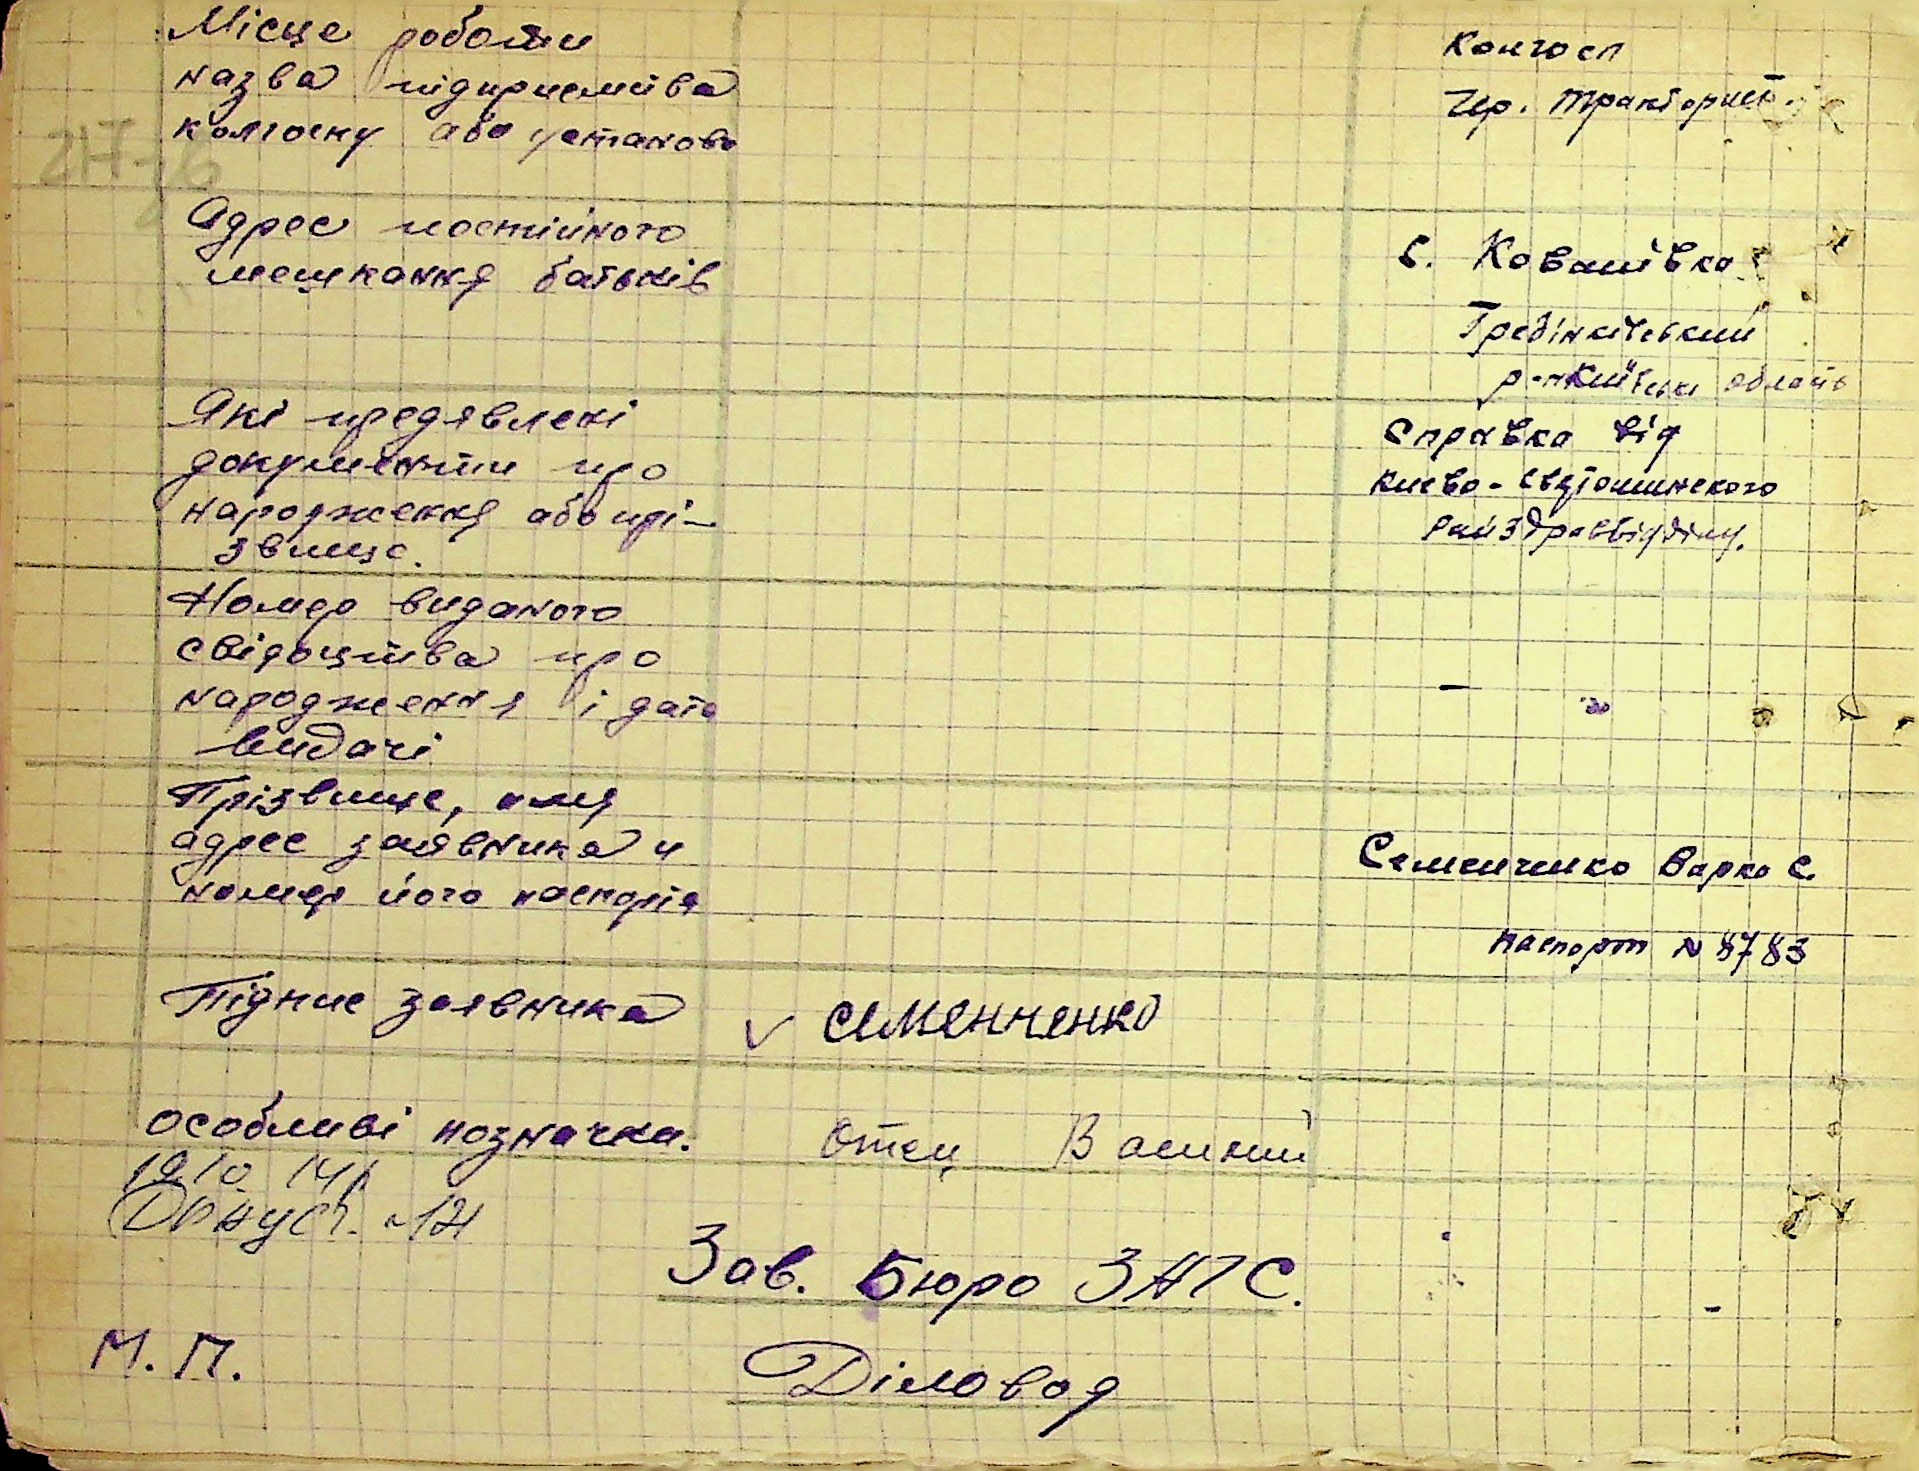 Місце роботи
назва підприємства
колгоспу або установи
колгосп
Чер. Тракторист
Адрес постійного
мешкання батьків
с. Ковалівка
Гребінківський
р-н Київська область
Які предявлені
документи про
народження або прі-
звище.
Справка від
Києво-Святошинського
райздороввідділу.
Номер виданого
свідоцтва про
народження і дата
видачі
Прізвище, имя
адрес заявника и
номер його паспорта
Семенченко Варка С.
паспорт N 8783
Підпис заявника
v Семенченко
особливі позначка.
Отец Василий
Зав. Бюро ЗАГС.
М. П.
Діловод